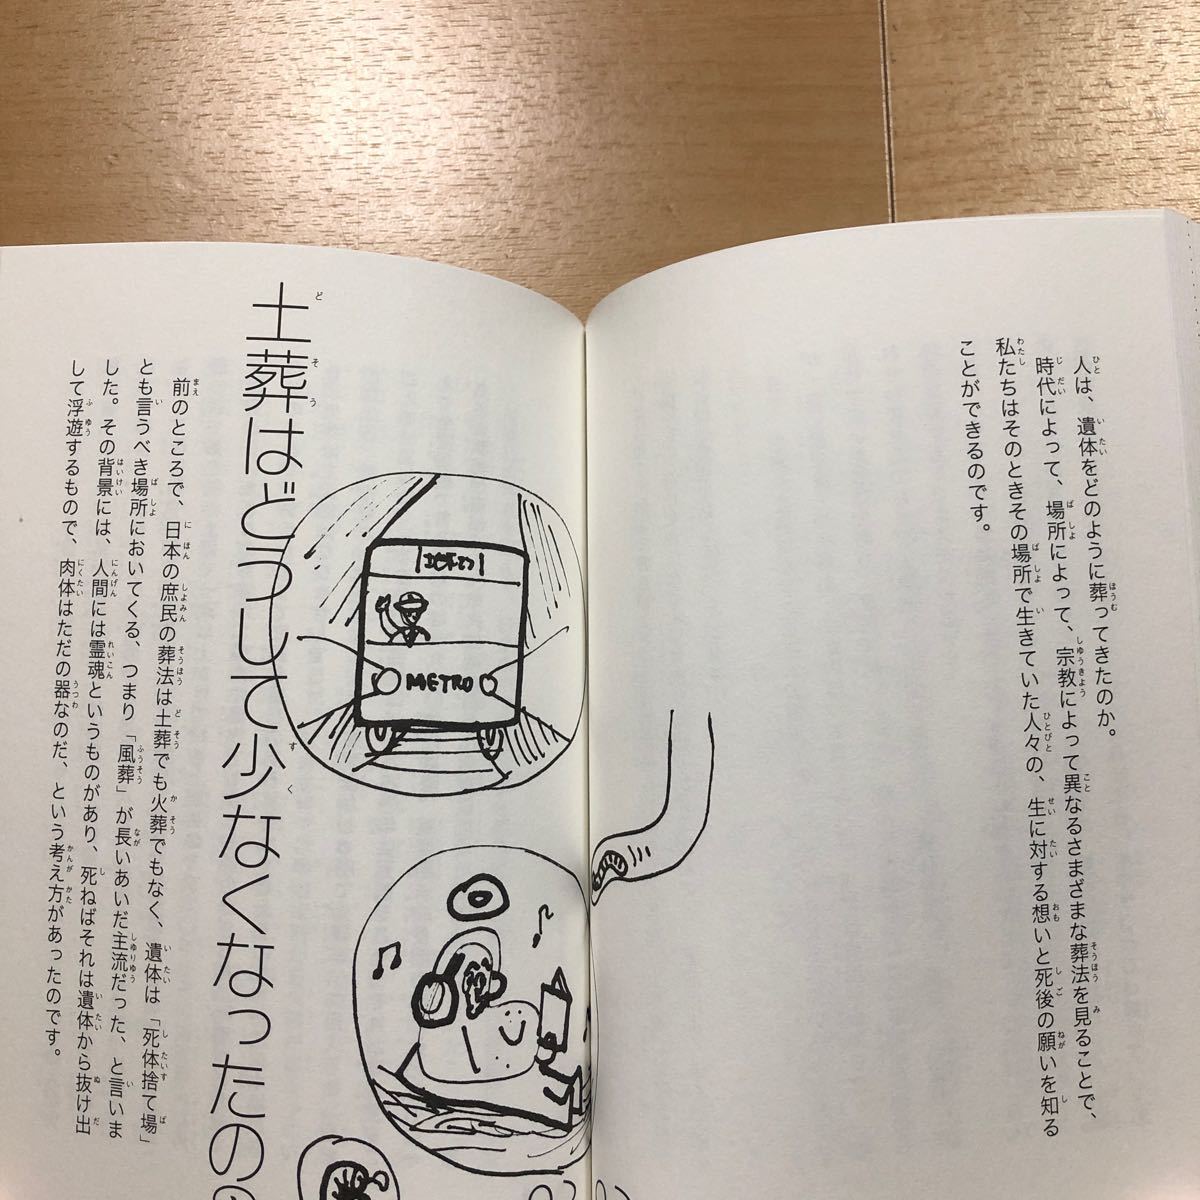 人は、遺体をどのように葬ってきたのか。
時代によって、場所によって、宗教によって異なるさまざまな葬法を見ることで、
私たちはそのときその場所で生きていた人々の、生に対する想いと死後の願いを知る
ことができるのです。
土葬はどうして少なくなったの
前のところで、日本の庶民の葬法は土葬でも火葬でもなく、遺体は「死体捨て場」
とも言うべき場所においてくる、つまり「風葬」が長いあいだ主流だった、と言いま
した。その背景には、人間には霊魂というものがあり、死ねばそれは遺体から抜け出
して浮遊するもので、肉体はただの器なのだ、という考え方があったのです。
METRO